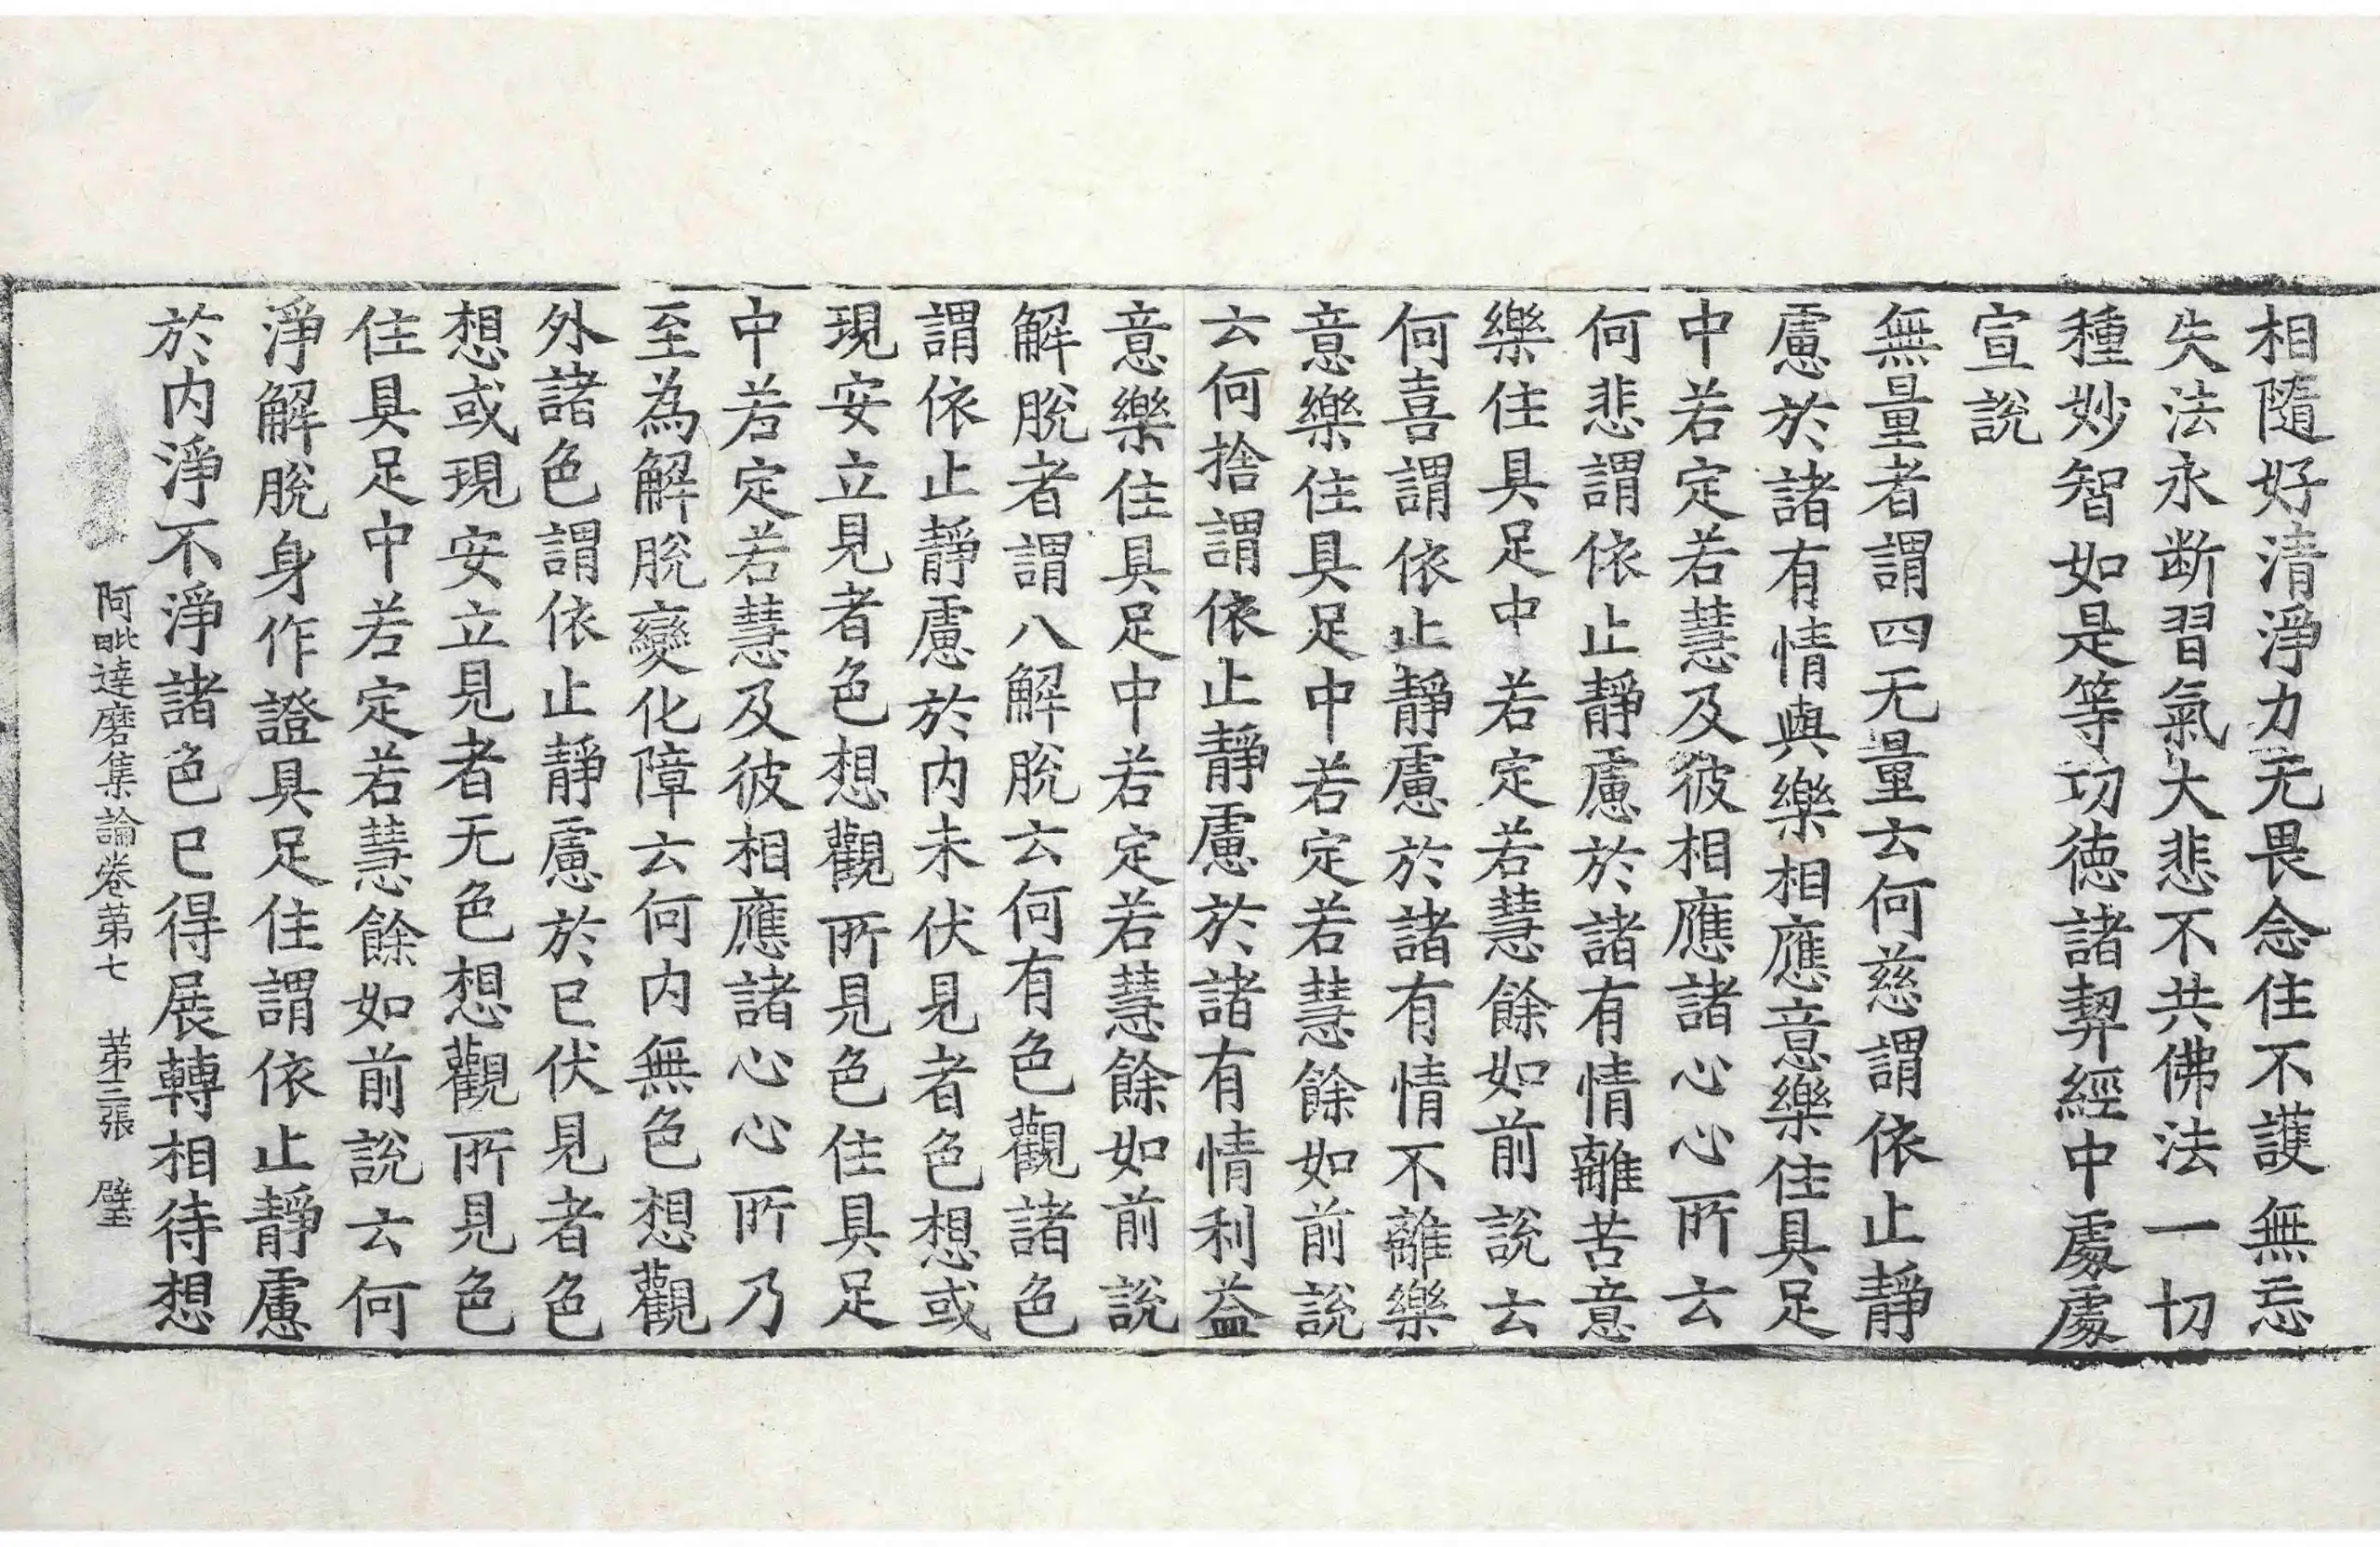 相隨好清淨力无畏念住不護無忘
失法永斷習氣大悲不共佛法一切
種妙智如是等功德諸契經中處處
宣說
無量者謂四无量云何慈謂依止靜
慮於諸有情與樂相應意樂住具足
中若定若慧及彼相應諸心心所云
何悲謂依止靜慮於諸有情離苦意
樂住具足中若定若慧餘如前說云
何喜謂依止靜慮於諸有情不離樂
意樂住具足中若定若慧餘如前說
云何捨謂依止靜慮於諸有情利益
意樂住具足中若定若慧餘如前說
解脫者謂八解脫云何有色觀諸色
謂依止靜慮於內未伏見者色想或
現安立見者色想觀所見色住具足
中若定若慧及彼相應諸心心所乃
至為解脫變化障云何內無色想觀
外諸色謂依止靜慮於已伏見者色
想或現安立見者无色想觀所見色
住具足中若定若慧餘如前說云何
淨解脫身作證具足住謂依止靜慮
於內淨不淨諸色已得展轉相待想
阿毗達磨集論卷第七 第三張 璧